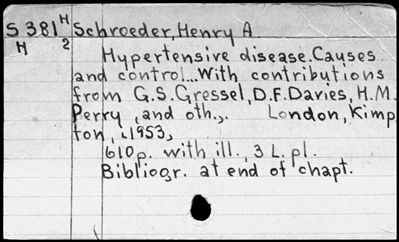 S 381 H Schroeder, Henry A.
H 2
Hypertensive disease. Causes
and control... With contributions
from G.S. Gressel, D.F. Davies, H.M.
Perry, and oth.,. London, Kimp
ton, 1953,
610p. with ill., 3 L. pl.
Bibliogr. at end of chapt.